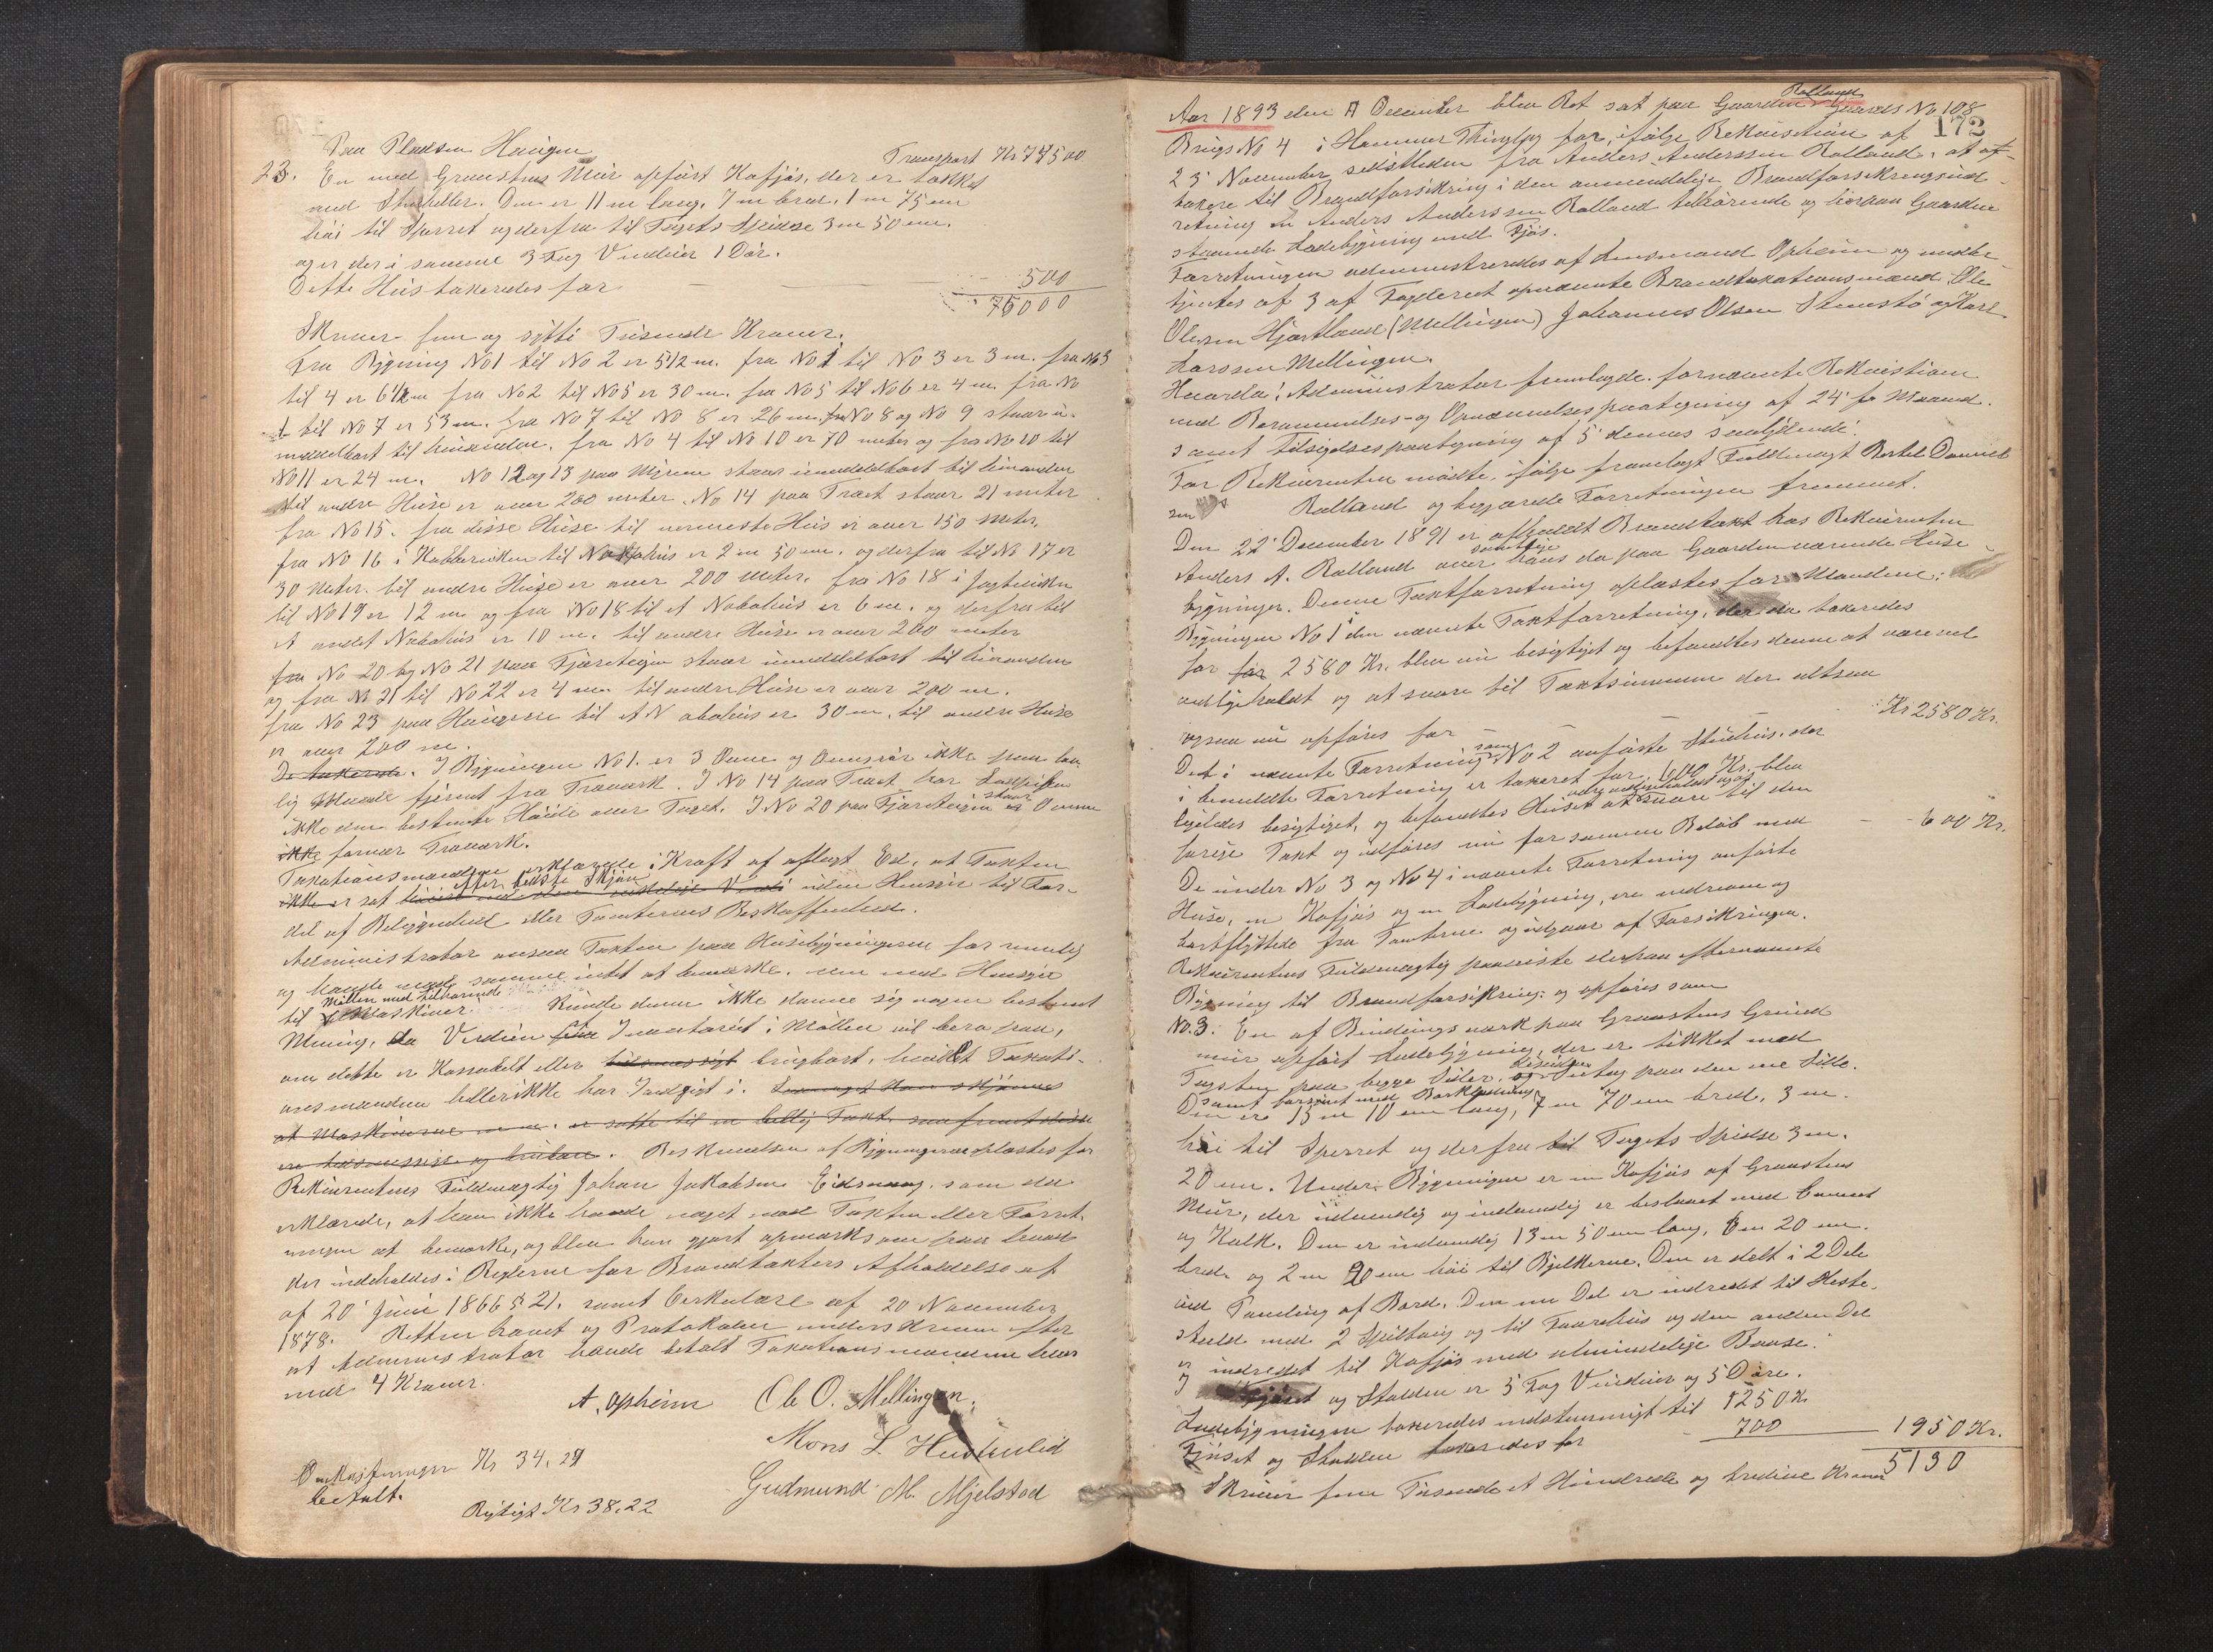 Paa Pladsen Haugen
Transport Kr 74500
23. En med Graastens Mur opført Kofjøs, der er takket
med Stenheller. Den er 11 m lang, 7 m bred, 1 m 75 cm
høi til Sperret og derfra til Tagets Spidse 3 m 50 cm.
og er der i samme 3 Fag Vinduer 1 Dør.
Dette Hus takseredes for — — 500
75000
Skriver fem og sytti Tusende Kroner.
Fra Bygning No 1 til No 2 er 5 1/2 m. fra No 1 til No 3 er 3 m. fra No 3
til 4 er 6 1/2 m fra No 2 til No 5 er 30 m. fra No 5 til No 6 er 4 m. fra No
1 til No 7 er 53 m. fra No 7 til No 8 er 26 m. fra No 8 og No 9 staar u-
middelbart til hinanden. fra No 4 til No 10 er 70 meter og fra No 10 til
No 11 er 24 m. No 12 og 13 paa Myrene staar umiddelbart til hinanden
til andre Huse er over 200 meter. No 14 paa Træet staar 21 meter
fra No 15. fra disse Huse til nermeste Hus er over 150 meter.
fra No 16 i til Nabohus er 2 m 50 cm. og derfra til No 17 er
30 meter. til andre Huse er over 200 meter. fra No 18 i
til No 19 er 12 m og fra No 18 til et Nabohus er 6 m. og derfra til
et andet Nabohus er 10 m. til andre Huse er over 200 meter
fra No 20 og No 21 paa Fjæreteigen staar umiddelbart til hinanden
og fra No 21 til No 22 er 4 m. til andre Huse er over 200 m.
fra No 23 paa Haugene til et Nabohus er 30 m. til andre Huse
er over 200 m.
De takserede. I Bygningen No 1. er 3 Ovne og Ovnsrør ikke paa lov-
lig Maade fjernet fra Træværk. I No 14 paa Træet har
ikke den bestemte Høide over Taget. I No 20 paa Fjæreteigen staar er Ovnen
ikke for nær Træværk.
Taxationsmændene erklærede i Kraft af aflagt Ed, at Taxten
ikke er sat efter bedste Skjøn uden Hensyn til For-
del af Beliggenhed eller Tomternes Beskaffenhed.
Administrator ansaa Taxten paa Husebygningerne for rimelig
og havde mod samme intet at bemærke. men med Hensyn
til Møllen med tilhørende Maskiner. Kunde denne ikke danne sig nogen bestemt
Mening, da Verdien fra Inventariet i Møllen vil bero paa,
om dette er Kassabelt eller brugbart, hvilket Taxati-
onsmændene heller ikke har Indsigt i.
at Maskinerne er satte til en billig Taxt
Beskrivelsen af Bygningerne oplæstes for
Rekvirentens Fuldmægtig Johan Jakobsen Eidsnaag. som da
erklærede, at han ikke havde noget mod Taxten eller Forret-
ningen at bemærke, og blev han gjort opmærksom paa hvad
der indeholdes i Reglerne for Brandtaxters Afholdelse af
af 20' Juni 1866 § 21. samt Cirkulære af 20 November
1878. Retten hævet og Protokolen underskreven efter
at Administrator havde betalt Taxationsmændene hver
med 4 Kroner.
A. Opheim Ole O. Mellingen.
Mons L.
Gudmund M. Mjelstad
Omkostningen Kr 34.29
betalt.
Rigtigt Kr 38.22
172
Aar 1893 den 7 December blev Ret sat paa Gaarden Rolland Gaards No 108
Brugs No 4 i Hammer Thinglag for, ifølge Rekvisition af
23' November sidstleden fra Anders Anderssen Rolland, at af-
taxere til Brandforsikring i den almindelige Brandforsikringsind-
retning en Anders Anderssen Rolland tilhørende og herpaa Gaarden
staaende Ladebygning med Fjøs.
Forretningen administreredes af Lensmand Opheim og indbe-
tjentes af 3 af Fogderiet opnævnte Brandtaxationsmænd, Ole
Olsen Hjortland (Mellingen) Johannes Olsen Stensto og Karl
Larssen Mellingen.
Hvorda! Administrator fremlagde. fornævnte Rekvisition
med Berammelses- og Opnævnelsespaategning af 24' f. Maaned.
samt Tilsigelsespaategning af 5' dennes
For Rekvirenten mødte, ifølge fremlagt Fuldmagt Bertel Daniel-
sen Rolland og begjærede Forretningen fremmet.
Den 22' December 1891 er afholdt Brandtaxt hos Rekvirenten
Anders A. Rolland over hans samtlige da paa Gaarden værende Huse-
bygninger. Denne Taxtforretning oplæstes for Mændene:
Bygningen No 1 i den nævnte Taxtforretning, der da taxeredes
for for 2580 Kr. blev nu besigtiget og befandtes denne at være vel
vedligeholdt og at svare til Taxtsummen der altsaa
ogsaa nu opføres for — — — Kr 2580 Kr.
Det i nævnte Forretning som No 2 anførte Stuehus, der
i bemeldte Forretning er taxeret for 600 Kr. blev
ligeledes besigtiget, og befandtes Huset at være vedligeholdt og at svare til den
forrige Taxt og udføres nu for samme Beløb med — - 600 Kr.
De under No 3 og No 4 i nævnte Forretning anførte
Huse, en Kofjøs og en Ladebygning, ere nedrevne og
bortflyttede fra Tomterne og udgaar af Forsikringen.
Rekvirentens Fuldmægtig paaviste derpaa efternævnte
Bygning til Brandforsikring: og opføres som
No. 3. En af Bindingsværk paa Graastens Grund
mur opført Ladebygning, der er tækket med
Tagsten paa begge Sider, og paa den ene Side.
samt forsynet med Bordklædning
Den er 15 m 10 cm lang, 7 m 70 cm bred, 3 m.
høi til Sperret og derfra til Tagets Spidse 3 m.
20 cm. Under Bygningen er en Kofjøs af Graastens
Mur, der udvendig og indvendig er beslaaet med Cement
og Kalk. Den er indvendig 13 m 50 cm lang, 6 m 20 cm.
bred og 2 m 20 cm høi til Bjelkerne. Den er delt i 2 Dele
ved Panding af Bord. Den ene Del er indredet til Heste-
stald med 2 Spiltaug og til Faarehus og den anden Del
er indredet til Kofjøs med almindelige Baase.
I Fjøset og Stalden er 5 Fag Vinduer og 5 Døre.
Ladebygningen taxeredes enstemmigt til 1250 Kr
Fjøset og Stalden taxeredes for - 700 1950 Kr.
5130
Skriver fem Tusende et Hundrede og tredive Kroner